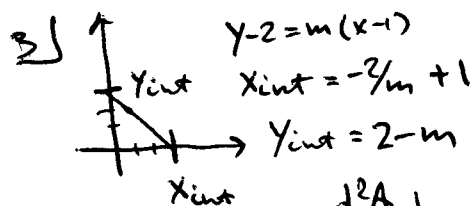 3]
y-2 = m(x-1)
Yint
Xint = -2/m + 1
Yint = 2-m
Xint
d²A